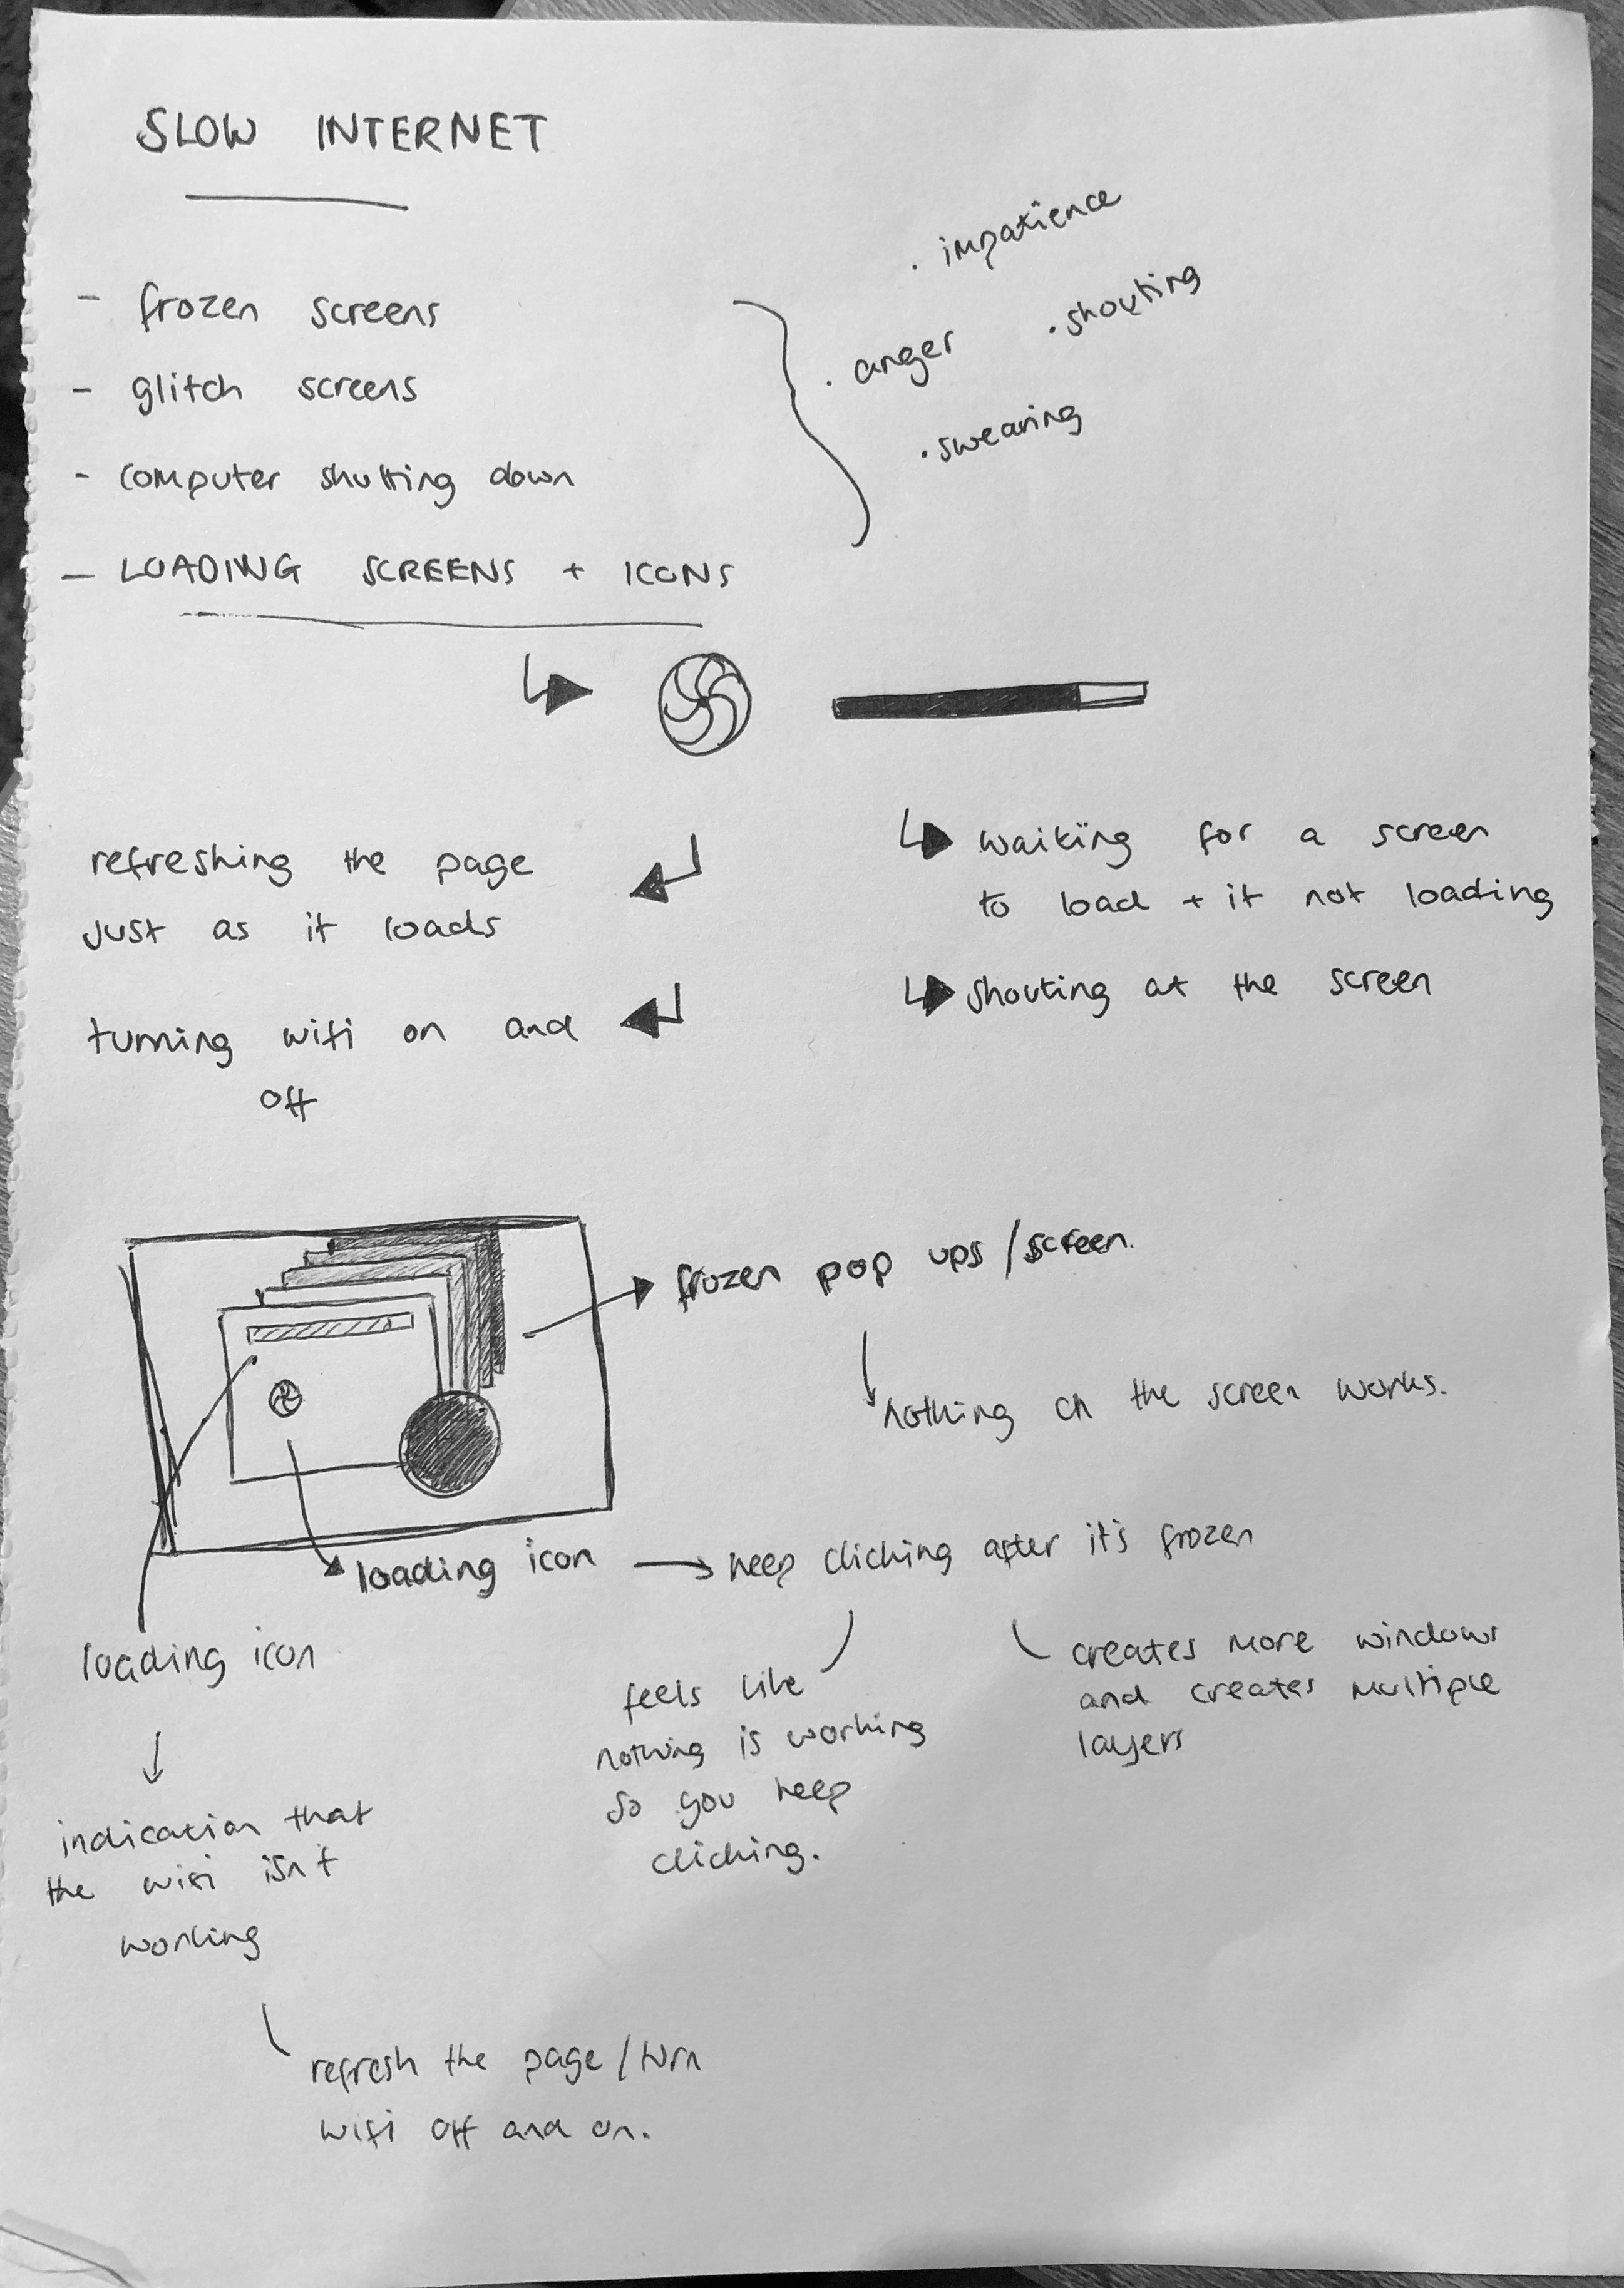 SLOW INTERNET
- frozen screens
- glitch screens
- computer shutting down
- LOADING SCREENS + ICONS
. impatience
. shouting
. anger
. swearing
refreshing the page
just as it loads
turning wifi on and
off
waiting for a screen
to load + it not loading
shouting at the screen
frozen pop ups/screen.
nothing on the screen works.
loading icon
keep clicking after it's frozen
loading icon
feels like
nothing is working
so you keep
clicking.
creates more windows
and creates multiple
layers
indication that
the wifi isn't
working
refresh the page/turn
wifi off and on.